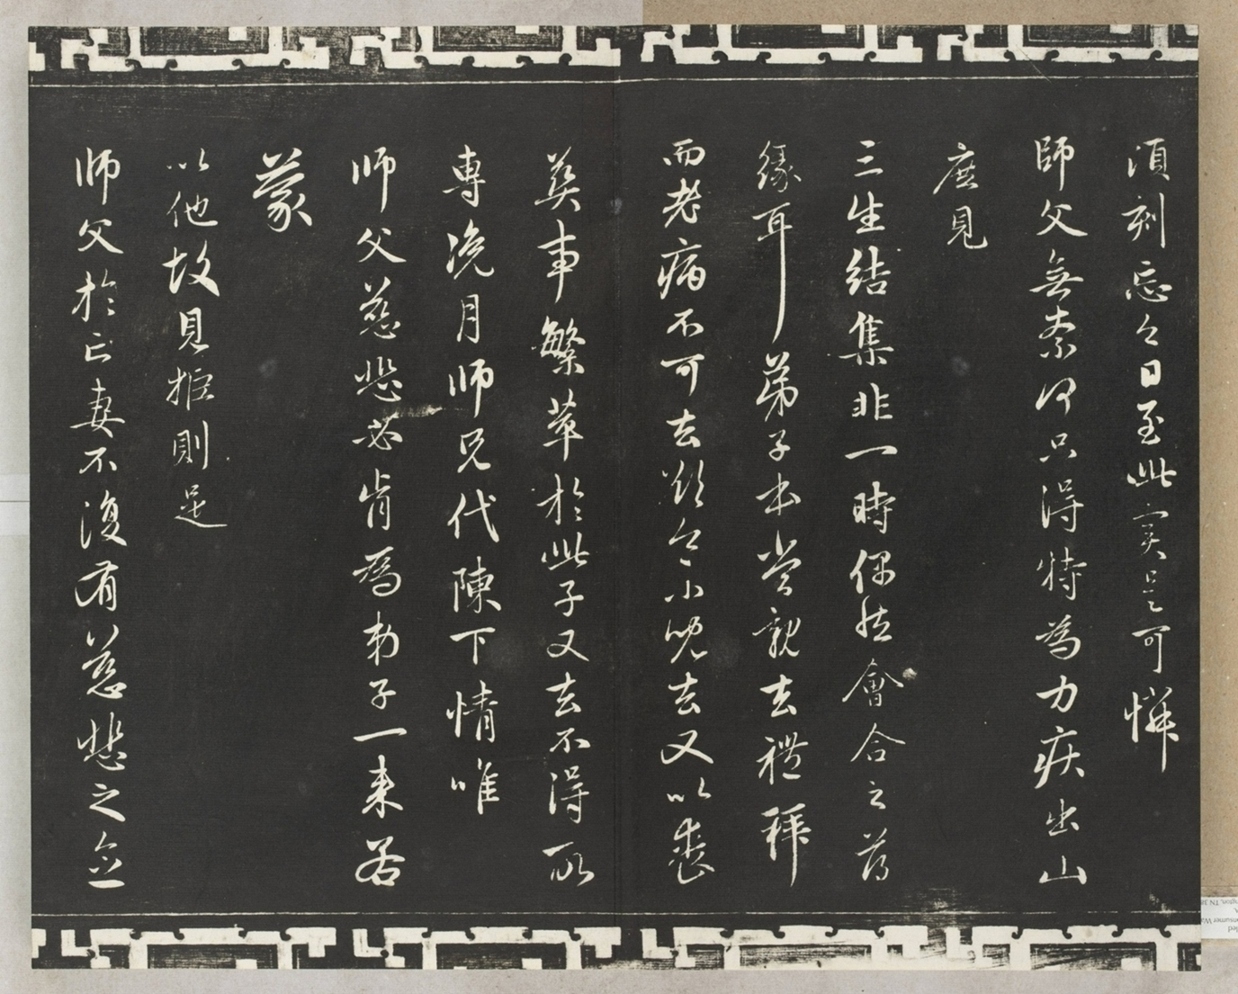 湏刻忘今日至此實是可憐
師父無奈何只得特為力疾出山
庶見
三生結集非一時偶然會合之薄
緣耳弟子本當親去禮拜
而老病不可去欲令小兒去又以喪
葬事繁萃於此子又去不得所
專浼月师兄代陳下情唯
师父慈悲必肯為弟子一来若
蒙
以他故見拒則是
师父於亡妻不復有慈悲之念